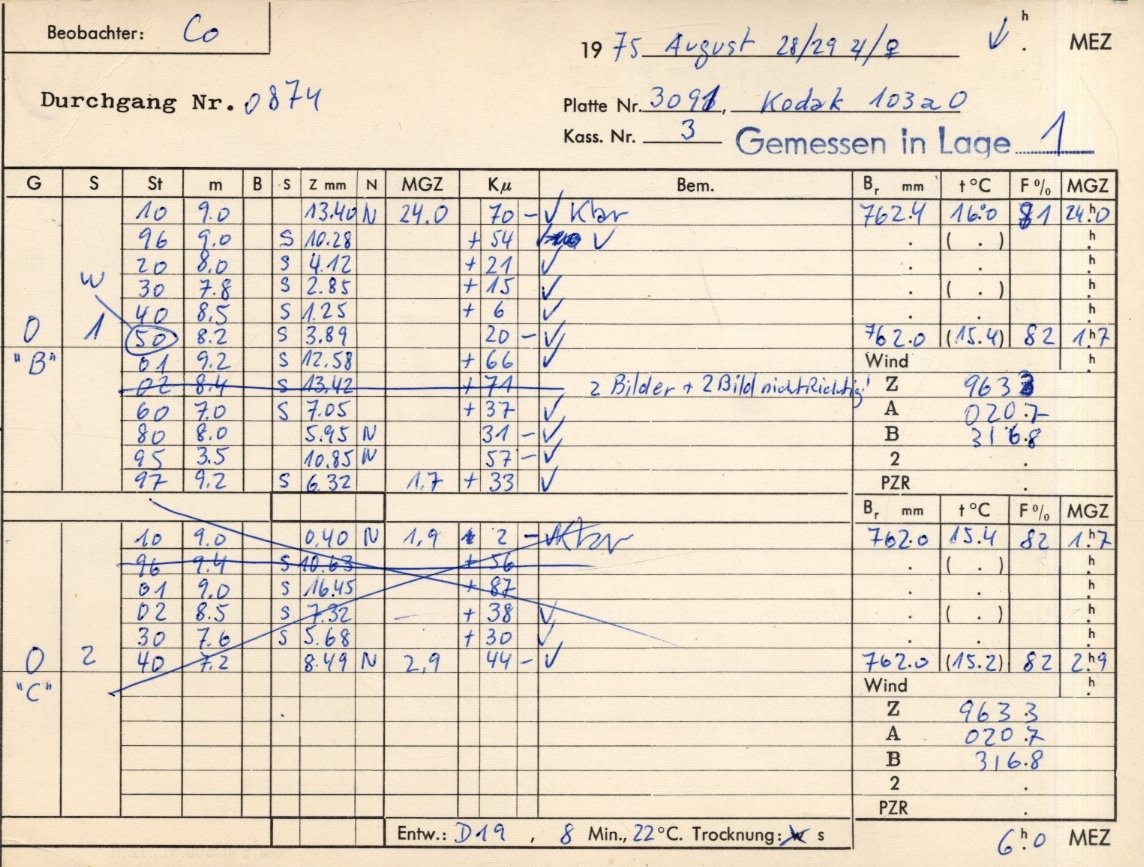 Beobachter: Co
1975 August 28/29 ♃/♀ √ h . MEZ
Durchgang Nr. 0874
Platte Nr. 3091, Kodak 103aO
Kass. Nr. 3 Gemessen in Lage 1
G S St m B S Z mm N MGZ Kμ Bem. Br mm t °C F % MGZ
10 9.0 13.40 N 24.0 70 - √ Kbr 762.4 16.0 81 24.h0
96 9.0 S 10.28 + 54 √ . ( . ) h
20 8,0 S 4.12 + 21 √ . . h
W 30 7.8 S 2.85 + 15 √ . ( . ) h
40 8,5 S 1.25 + 6 √ . . h
0 1 50 8.2 S 3.89 20 - √ 762.0 (15.4) 82 1.h7
"B" 01 9.2 S 12.58 + 66 √ Wind h
02 8.4 S 13.42 + 71 2 Bilder + 2 Bild nicht Richtig! Z 963 3
60 7.0 S 7.05 + 37 √ A 020.7
80 8.0 5.95 N 31 - √ B 316.8
95 3.5 10.85 N 57 - √ 2 .
97 9.2 S 6.32 1.7 + 33 √ PZR .
Br mm t °C F % MGZ
10 9.0 0.40 N 1,9 2 - √ Kbr 762.0 15.4 82 1.h7
96 9.4 S 10.63 + 56 . ( . ) h
01 9.0 S 16.45 + 87 . . h
02 8.5 S 7.32 — + 38 √ . ( . ) h
30 7.6 S 5.68 + 30 √ . . h
0 2 40 7.2 8.49 N 2,9 44 - √ 762.0 (15.2) 82 2.h9
"C" Wind h
Z 963 3
A 020.7
B 316.8
2 .
PZR .
Entw.: D19 , 8 Min., 22°C. Trocknung: w s
6.h0 MEZ